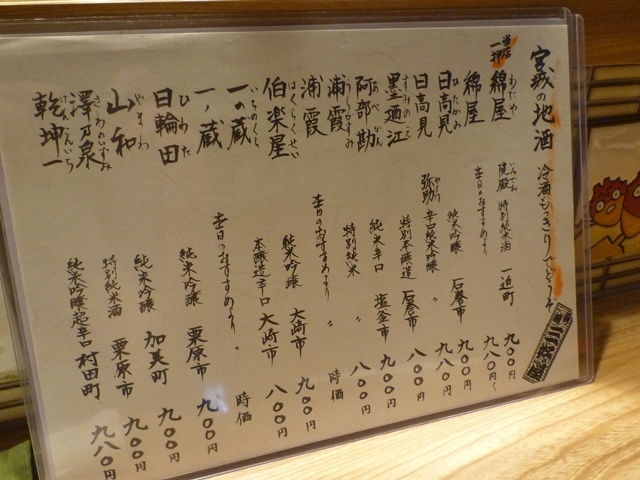 宮城の地酒 冷酒もっきりでどうぞ
当店一押 綿屋 わたや 特別純米酒 一迫町 九〇〇円
綿屋 本日のおすすめより 九八〇円〜
日高見 ひたかみ 純米吟醸 石巻市 九〇〇円
日高見 弥助 辛口純米吟醸 〃 九〇〇円
墨廼江 すみのえ 特別本醸造 石巻市 八〇〇円
阿部勘 あべかん 純米辛口 塩釜市 九〇〇円
浦霞 うらかすみ 特別純米 〃 九〇〇円
浦霞 本日のおすすめより 〃 時価
伯楽星 はくらくせい 純米吟醸 大崎市 九〇〇円
一の蔵 いちのくら 本醸造辛口 大崎市 八〇〇円
一ノ蔵 本日のおすすめより 〃 時価
日輪田 ひわた 純米吟醸 栗原市 九〇〇円
山和 やまわ 純米吟醸 加美町 九〇〇円
澤乃泉 さわのいずみ 特別純米酒 栗原市 九〇〇円
乾坤一 けんこんいち 純米吟醸超辛口 村田町 九八〇円